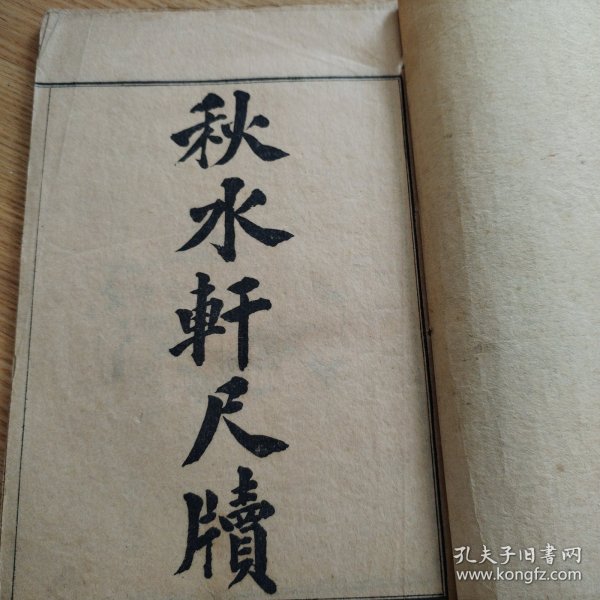 秋水軒尺牘
孔夫子旧書网
www.kongfz.com